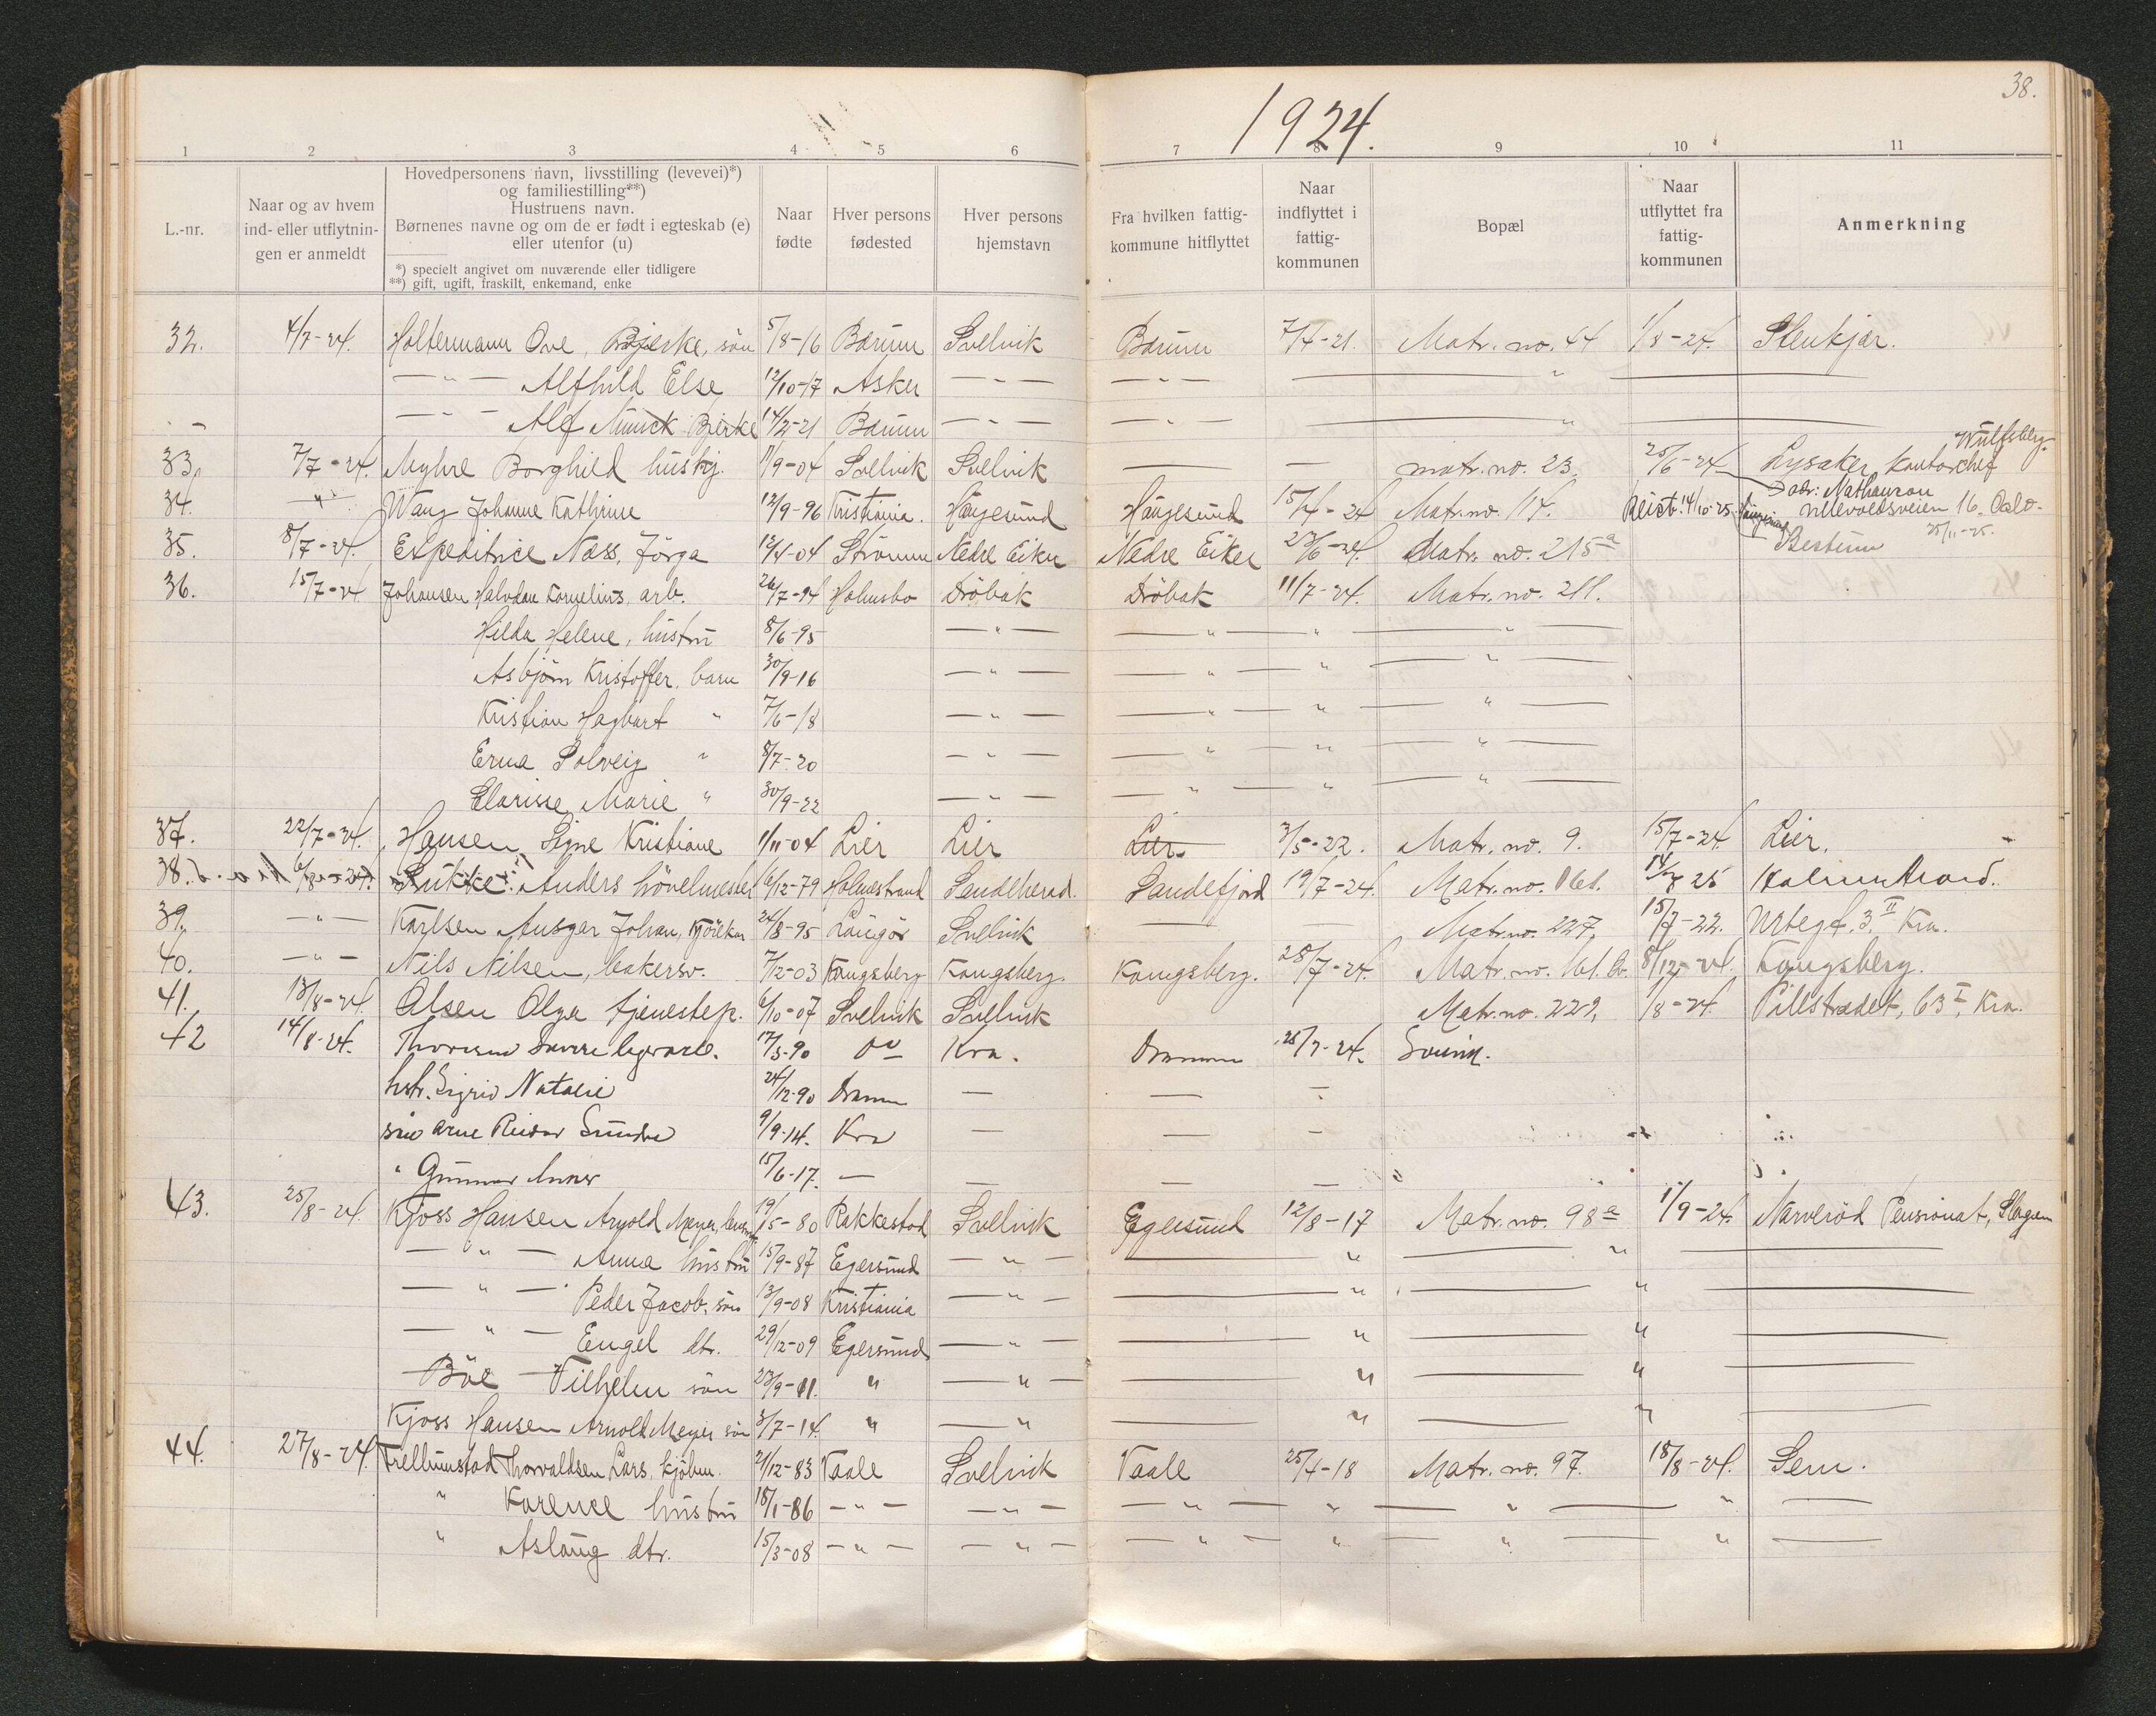 38.
1924.
1 2 3 4 5 6 7 8 9 10 11
L.-nr.
Naar og av hvem
ind- eller utflytnin-
gen er anmeldt
Hovedpersonens navn, livsstilling (levevei)*)
og familiestilling**)
Hustruens navn.
Børnenes navne og om de er født i egteskab (e)
eller utenfor (u)
*) specielt angivet om nuværende eller tidligere
**) gift, ugift, fraskilt, enkemand, enke
Naar
fødte
Hver persons
fødested
Hver persons
hjemstavn
Fra hvilken fattig-
kommune hitflyttet
Naar
indflyttet i
fattig-
kommunen
Bopæl
Naar
utflyttet fra
fattig-
kommunen
Anmerkning
32. 4/7-24. Holtermann Ove, Bjerke, sön 5/8-16 Bærum Svelvik Bærum 7/4-21. Matr. no. 44 1/8-24. Stenkjær.
— " — Alfhild Else 12/10-17 Asker — " — — " — "
— " — Alf Munck Bjerke 14/2-21 Bærum — " — — " — "
33. 7/7-24. Myhre Borghild hushj. 11/9-04 Svelvik Svelvik — — matr. no. 23. 25/6-24 Lysaker, kontorchef Wulfsberg.
34. — " — Wang Johanne Kathrine 12/9-96 Kristiania. Haugesund Haugesund 15/4-24 Matr. no. 114. 14/10-25 Haugesund adr: Nathanson Ullevoldsveien 16. Oslo. 25/11-25.
35. 8/7-24. Expeditrice Næss, Jörga 12/4-04 Strömm Nedre Eiker Nedre Eiker 23/6-24. Matr. no. 215a Bestum
36. 15/7-24 Johansen Halvdan Kornelius, arb. 26/7-94 Holmsbo Dröbak Dröbak 11/7-24. Matr. no. 211.
Hilda Helene, hustru 8/6-95 — " — — " — " — " —
Asbjörn Kristoffer, barn 30/9-16 — " — — " — " — " —
Kristian Hagbart " 7/6-18 — " — — " — " — " —
Erna Solveig " 8/7-20 — " — — " — " — " —
Clarisse Marie " 30/9-22 — " — — " — " — " —
37. 22/7-24. Hansen Signe Kristiane 1/11-04 Lier Lier Lier. 3/5-22. Matr. no. 9. 15/7-24 Lier.
38. 6/8-24. Lükke Anders hövelmester 6/12-79 Holmestrand Sandeherred. Sandefjord 19/7-24. Matr. no. 161. 14/8 25 Holmestrand.
39. — " — Karlsen Ansgar Johan, kjörekar 24/8-95 Langör Svelvik — — Matr. no. 227, 15/7-22. Urtegt. 3. II Kra.
40. — " — Nils Nilsen, bakersv. 7/12-03 Kongsberg Kongsberg. Kongsberg. 28/7-24. Matr. no. 161. b. 8/12-24. Kongsberg.
41. 13/8-24. Olsen Olga tjenestep. 6/10-07 Svelvik Svelvik Matr. no. 229, 18-24. Pillstrædet, 63 I, Kra.
42 14/8-24. Thoresen Sverre 17/3-90 Do Kra. Drammen 25/7-24.
hstr. Sigrid Natalie 24/12-90 Dramm — — —
sön Arne Reidar 9/9-14. Kra — — —
" Gunnar 15/6-17. — — — —
43. 25/8-24. Kjoss Hansen Arnold Meyer, 19/5-80 Rakkestad Svelvik Egersund 12/8-17 Matr. no. 98a 1/9-24. Narveröd Pensionat, Slagen
— " — Anna hustru 15/9-87 Egersund — " — — " — "
— " — Peder Jacob, sön 13/9-08 Kristiania — " — — " — "
— " — Engel dtr. 29/12-09 Egersund — " — — " — "
Böe — Vilhelm sön 23/9-11. " — " — — " — "
Kjoss Hansen Arnold Meyer sön 3/7-14. " — " — " — "
44. 27/8-24. Trellumstad Thorvaldsen Lars, kjöbm. 21/12-83 Vaale Svelvik Vaale 25/4-18 Matr. no. 97. 15/8-24. Sem.
" Karense hustru 18/1-86 — " — — " — — " — " — " — " —
" Aslaug dtr. 15/3-08 — " — — " — — " — " — " — " —